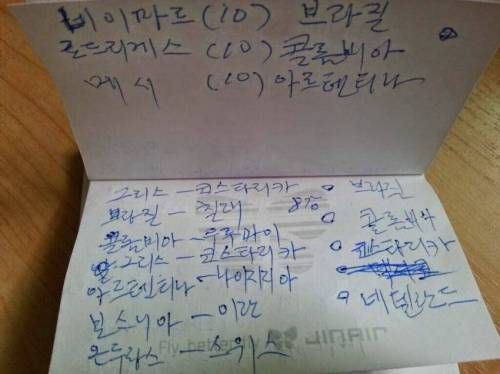 네이마르 (10) 브라질
로드리게스 (10) 콜롬비아
메시 (10) 아르헨티나
그리스 - 코스타리카
브라질 - 칠레 8강
콜롬비아 - 우루과이
그리스 - 코스타리카
아르헨티나 - 나이지리아
보스니아 - 이란
온두라스 - 스위스
브라질
콜롬비아
코스타리카
네델란드
Fly, better JINAIR